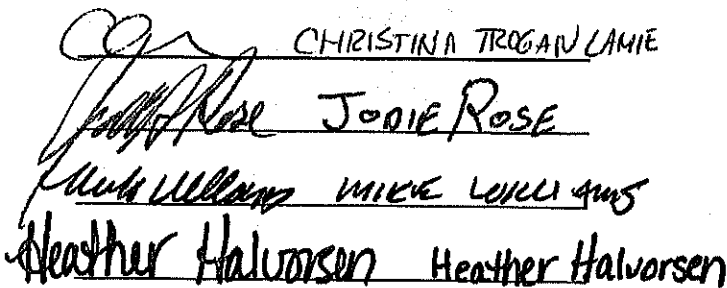 CHRISTINA TROGAN LAMIE
Jodie Rose JODIE ROSE
Mike Williams MIKE WILLIAMS
Heather Halvorsen Heather Halvorsen